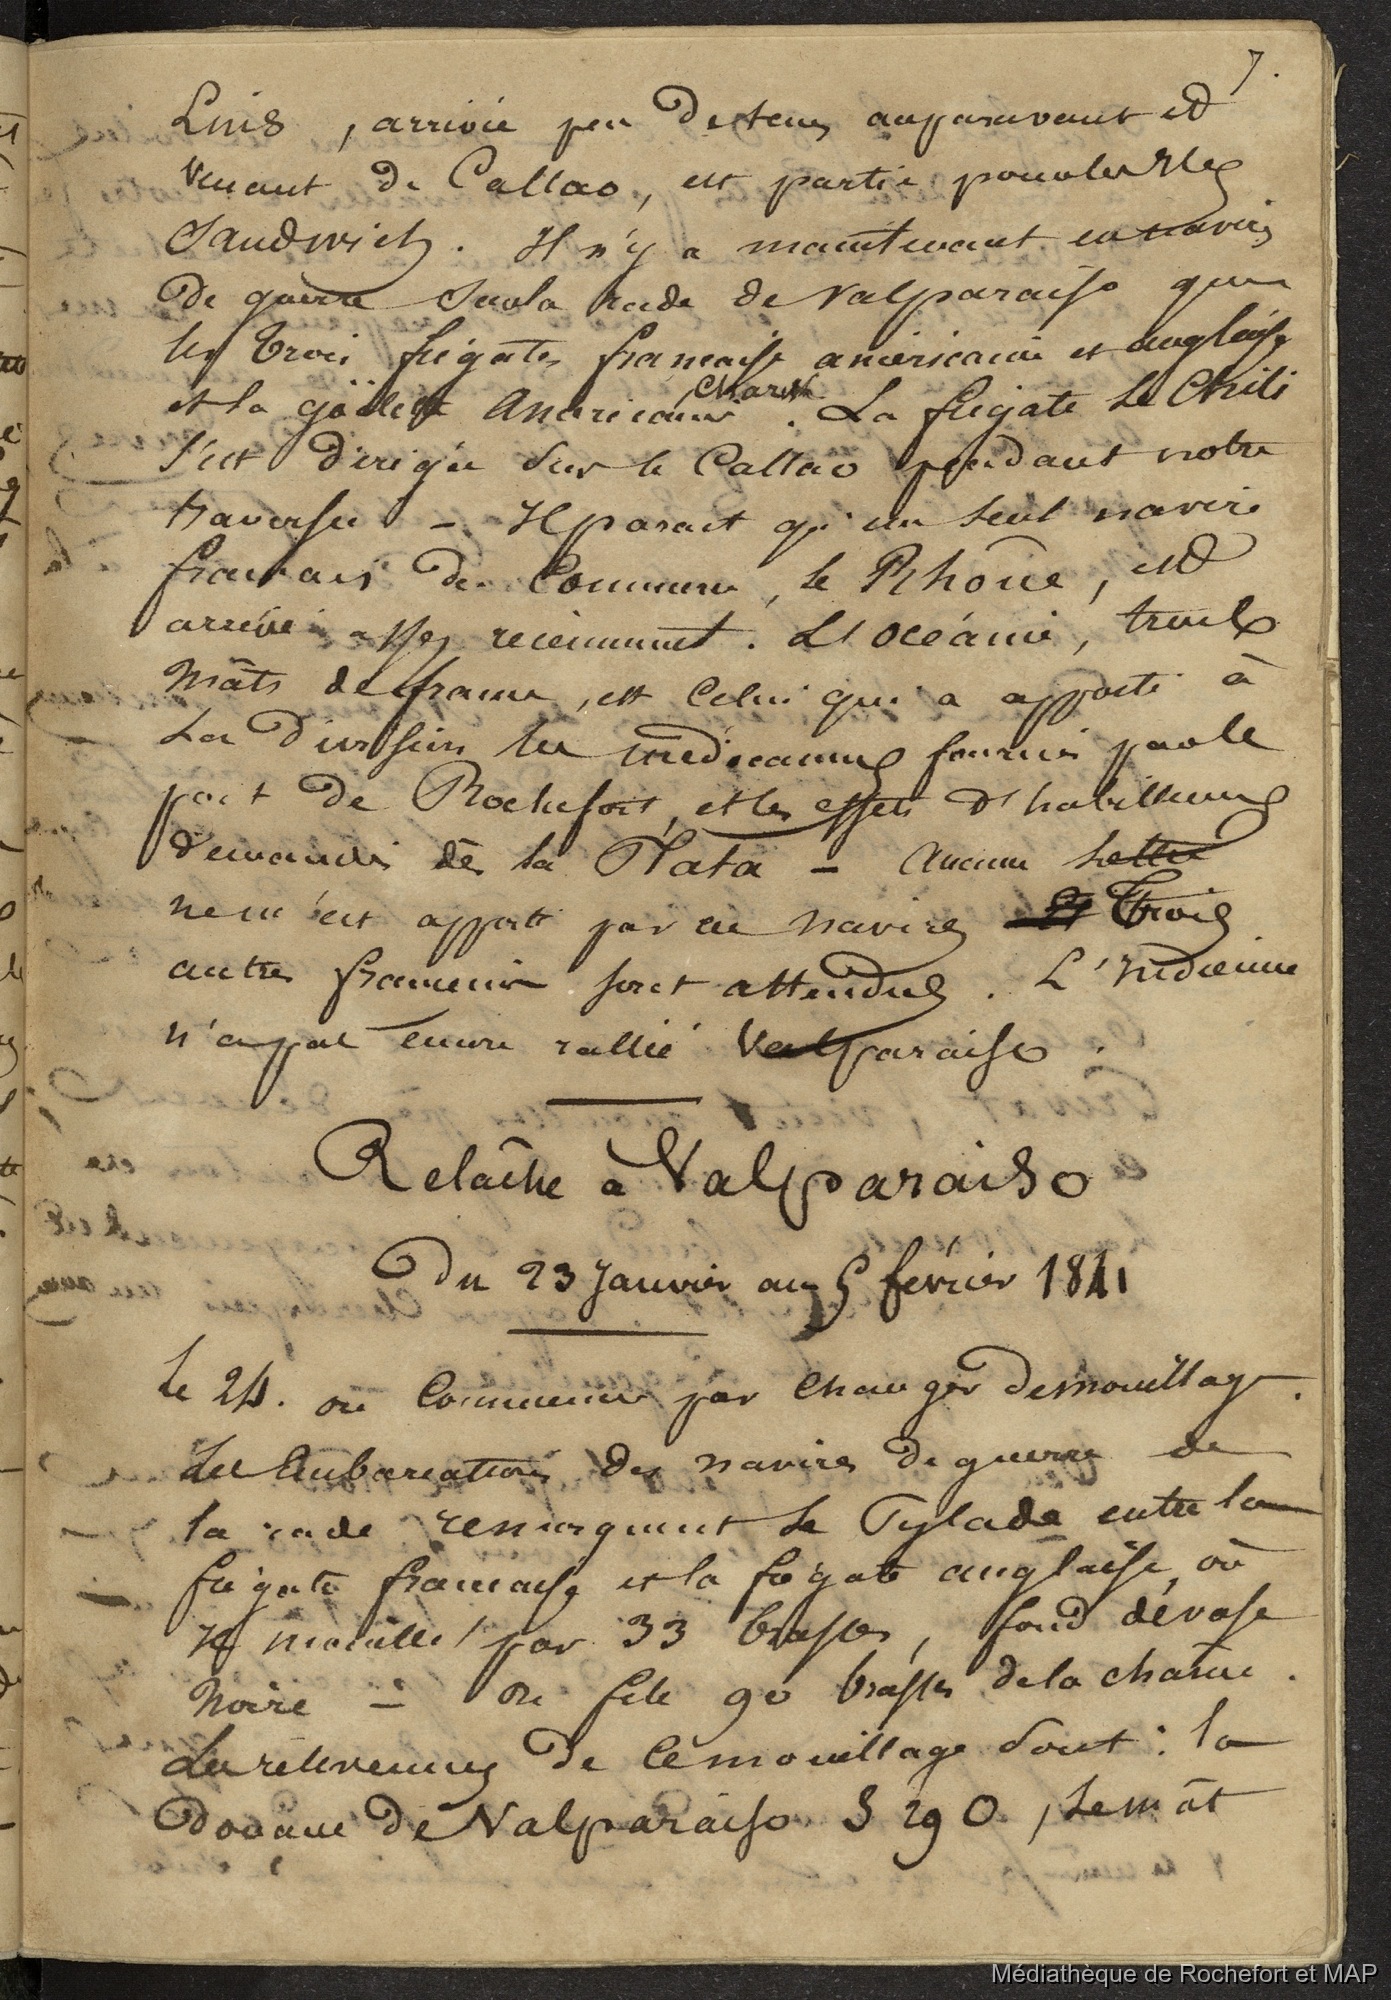 7.
Luis, arrivée peu de tems auparavant et
venant de Callao, est partie pour les Iles
Sandwich. Il n'y a maintenant en navires
de guerre sur la rade de Valparaiso que
les trois frégates française américaine et anglaise
et la goëlette Américaine Shark. La frégate Le Chili
s'est dirigée sur le Callao pendant notre
traversée - Il parait qu'un seul navire
français de commerce, le Rhône, est
arrivé assez récemment. L'Océanie, trois
mâts de france, est celui qui a apporté à
la Division les médicamens fournis par le
port de Rochefort, et les effets d'habillemens
demandés dès la Plata - Aucune lettre
ne m'est apporté par ces navires Trois
autres français sont attendus. L'Indienne
n'a pas encore rallié Valparaiso.
Relâche à Valparaiso
Du 23 Janvier au 5 février 1841
Le 24. on commence par changer de mouillage.
Les Embarcations des navires de guerre de
la rade remorquent Le Pylade entre la
frégate française et la frégate anglaise, où
il mouille par 33 brasses, fond de vase
Noire - On file 90 brasses de la chaîne.
Les relevemens de ce mouillage sont : la
douane de Valparaiso S 29 O, Le mât
Médiathèque de Rochefort et MAP